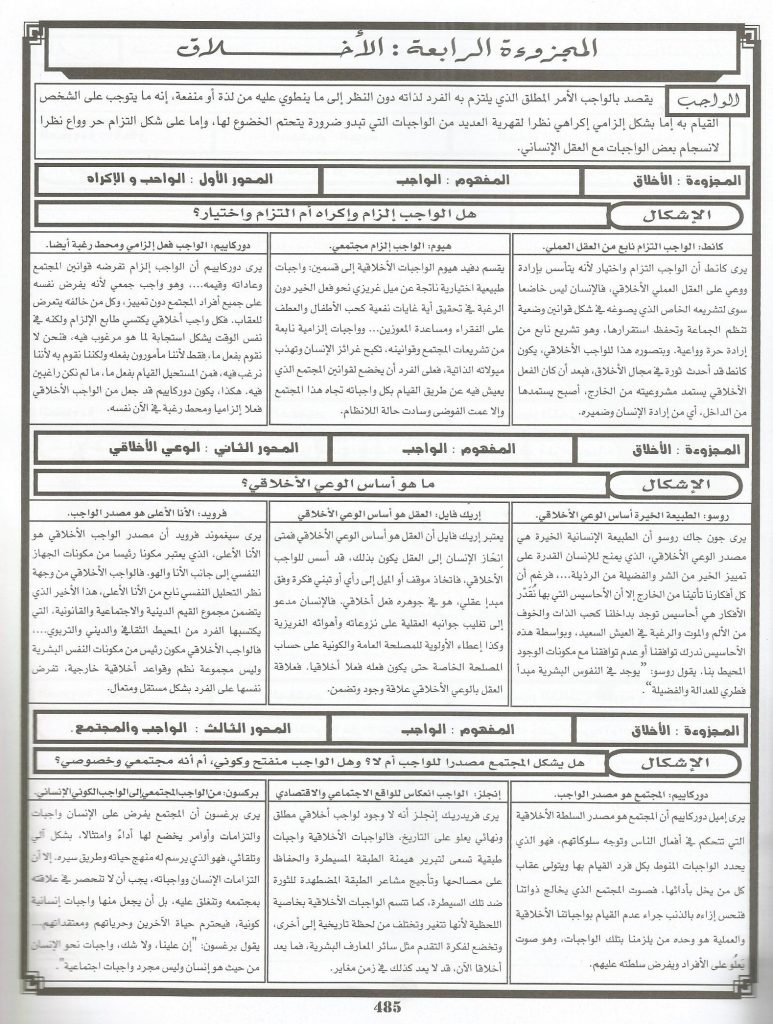 المجزوءة الرابعة : الأخلاق
الواجب
يقصد بالواجب الأمر المطلق الذي يلتزم به الفرد لذاته دون النظر إلى ما ينطوي عليه من لذة أو منفعة، إنه ما يتوجب على الشخص
القيام به إما بشكل إلزامي إكراهي نظرا لقهرية العديد من الواجبات التي تبدو ضرورة يتحتم الخضوع لها، وإما على شكل التزام حر وواع نظرا
لانسجام بعض الواجبات مع العقل الإنساني.
المجزوءة : الأخلاق
المفهوم : الواجب
المحور الأول : الواجب و الإكراه
الإشكال
هل الواجب إلزام وإكراه أم التزام واختيار؟
كانط: الواجب التزام نابع من العقل العملي.
يرى كانط أن الواجب التزام واختيار لأنه يتأسس بإرادة
ووعي على العقل العملي الأخلاقي، فالإنسان ليس خاضعا
سوى لتشريعه الخاص الذي يصوغه في شكل قوانين وضعية
تنظم الجماعة وتحفظ استقرارها، وهو تشريع نابع من
إرادة حرة وواعية. وبتصوره هذا للواجب الأخلاقي، يكون
كانط قد أحدث ثورة في مجال الأخلاق، فبعد أن كان الفعل
الأخلاقي يستمد مشروعيته من الخارج، أصبح يستمدها
من الداخل، أي من إرادة الإنسان وضميره.
هيوم: الواجب إلزام مجتمعي.
يقسم دفيد هيوم الواجبات الأخلاقية إلى قسمين: واجبات
طبيعية اختيارية ناتجة عن ميل غريزي نحو فعل الخير دون
الرغبة في تحقيق أية غايات نفعية كحب الأطفال والعطف
على الفقراء ومساعدة المعوزين... وواجبات إلزامية نابعة
من تشريعات المجتمع وقوانينه، تكبح غرائز الإنسان وتهذب
ميولاته الذاتية، فعلى الفرد أن يخضع لقوانين المجتمع الذي
يعيش فيه عن طريق القيام بكل واجباته تجاه هذا المجتمع
وإلا عمت الفوضى وسادت حالة اللانظام.
دوركاييم: الواجب فعل إلزامي ومحط رغبة أيضا.
يرى دوركاييم أن الواجب إلزام تفرضه قوانين المجتمع
وعاداته وقيمه.... وهو واجب جمعي لأنه يفرض نفسه
على جميع أفراد المجتمع دون تمييز، وكل من خالفه يتعرض
للعقاب. فكل واجب أخلاقي يكتسي طابع الإلزام ولكنه في
نفس الوقت يشكل استجابة لما هو مرغوب فيه، فنحن لا
نقوم بفعل ما، فقط لأننا مأمورون بفعله ولكننا نقوم به لأننا
نرغب فيه، فمن المستحيل القيام بفعل ما، ما لم نكن راغبين
فيه. هكذا، يكون دوركاييم قد جعل من الواجب الأخلاقي
فعلا إلزاميا ومحط رغبة في الآن نفسه.
المجزوءة : الأخلاق
المفهوم : الواجب
المحور الثاني : الوعي الأخلاقي
الإشكال
ما هو أساس الوعي الأخلاقي؟
روسو: الطبيعة الخيرة أساس الوعي الأخلاقي.
يرى جون جاك روسو أن الطبيعة الإنسانية الخيرة هي
مصدر الوعي الأخلاقي، الذي يمنح للإنسان القدرة على
تمييز الخير من الشر والفضيلة من الرذيلة.... فرغم أن
كل أفكارنا تأتينا من الخارج إلا أن الأحاسيس التي بها نُقَدّر
الأفكار هي أحاسيس توجد بداخلنا كحب الذات والخوف
من الألم والموت والرغبة في العيش السعيد، وبواسطة هذه
الأحاسيس ندرك توافقنا أو عدم توافقنا مع مكونات الوجود
المحيط بنا. يقول روسو: "يوجد في النفوس البشرية مبدأ
فطري للعدالة والفضيلة".
إريك فايل: العقل هو أساس الوعي الأخلاقي
يعتبر إريك فايل أن العقل هو أساس الوعي الأخلاقي فمتى
انحاز الإنسان إلى العقل يكون بذلك، قد أسس للواجب
الأخلاقي، فاتخاذ موقف أو الميل إلى رأي أو تبني فكرة وفق
مبدإ عقلي، هو في جوهره فعل أخلاقي. فالإنسان مدعو
إلى تغليب جوانبه العقلية على نزوعاته وأهوائه الغريزية
وكذا إعطاء الأولوية للمصلحة العامة والكونية على حساب
المصلحة الخاصة حتى يكون فعله فعلا أخلاقيا. فعلاقة
العقل بالوعي الأخلاقي علاقة وجود وتضمن.
فرويد: الأنا الأعلى هو مصدر الواجب.
يرى سيغموند فرويد أن مصدر الواجب الأخلاقي هو
الأنا الأعلى، الذي يعتبر مكونا رئيسا من مكونات الجهاز
النفسي إلى جانب الأنا والهو. فالواجب الأخلاقي من وجهة
نظر التحليل النفسي نابع من الأنا الأعلى، هذا الأخير الذي
يتضمن مجموع القيم الدينية والاجتماعية والقانونية. التي
يكتسبها الفرد من المحيط الثقافي والديني والتربوي....
فالواجب الأخلاقي مكون رئيس من مكونات النفس البشرية
وليس مجموعة نظم وقواعد أخلاقية خارجية. تفرض
نفسها على الفرد بشكل مستقل ومتعال.
المجزوءة : الأخلاق
المفهوم : الواجب
المحور الثالث : الواجب والمجتمع.
الإشكال
هل يشكل المجتمع مصدرا للواجب أم لا؟ وهل الواجب منفتح وكوني، أم أنه مجتمعي وخصوصي؟
دوركاييم: المجتمع هو مصدر الواجب.
يرى إميل دوركاييم أن المجتمع هو مصدر السلطة الأخلاقية
التي تتحكم في أفعال الناس وتوجه سلوكاتهم، فهو الذي
يحدد الواجبات المنوط بكل فرد القيام بها ويتولى عقاب
كل من يخل بأدائها. فصوت المجتمع الذي يخالج ذواتنا
فنحس إزاءه بالذنب جراء عدم القيام بواجباتنا الأخلاقية
والعملية هو وحده من يلزمنا بتلك الواجبات، وهو صوت
يَعلُو على الأفراد ويفرض سلطته عليهم.
إنجلز: الواجب انعكاس للواقع الاجتماعي والاقتصادي
يرى فريدريك إنجلز أنه لا وجود لواجب أخلاقي مطلق
ونهائي يعلو على التاريخ، فالواجبات الأخلاقية واجبات
طبقية تسعى لتبرير هيمنة الطبقة المسيطرة والحفاظ
على مصالحها وتأجيج مشاعر الطبقة المضطهدة للثورة
ضد تلك السيطرة، كما تتسم الواجبات الأخلاقية بخاصية
اللحظية لأنها تتغير وتختلف من لحظة تاريخية إلى أخرى،
وتخضع لفكرة التقدم مثل سائر المعارف البشرية، فما يعد
أخلاقا الآن، قد لا يعد كذلك في زمن مغاير.
بركسون: من الواجب المجتمعي إلى الواجب الكوني الإنساني.
يرى برغسون أن المجتمع يفرض على الإنسان واجبات
والتزامات وأوامر يخضع لها أداءً وامتثالا، بشكل آلي
وتلقائي، فهو الذي يرسم له منهج حياته وطريق سيره. إلا أن
التزامات الإنسان وواجباته، يجب أن لا تنحصر في علاقته
بمجتمعه وتنغلق عليه، بل أن يجعل منها واجبات إنسانية
كونية، فيحترم حياة الآخرين وحرياتهم ومعتقداتهم...
يقول برغسون: "إن علينا، ولا شك، واجبات نحو الإنسان
من حيث هو إنسان وليس مجرد واجبات اجتماعية".
485